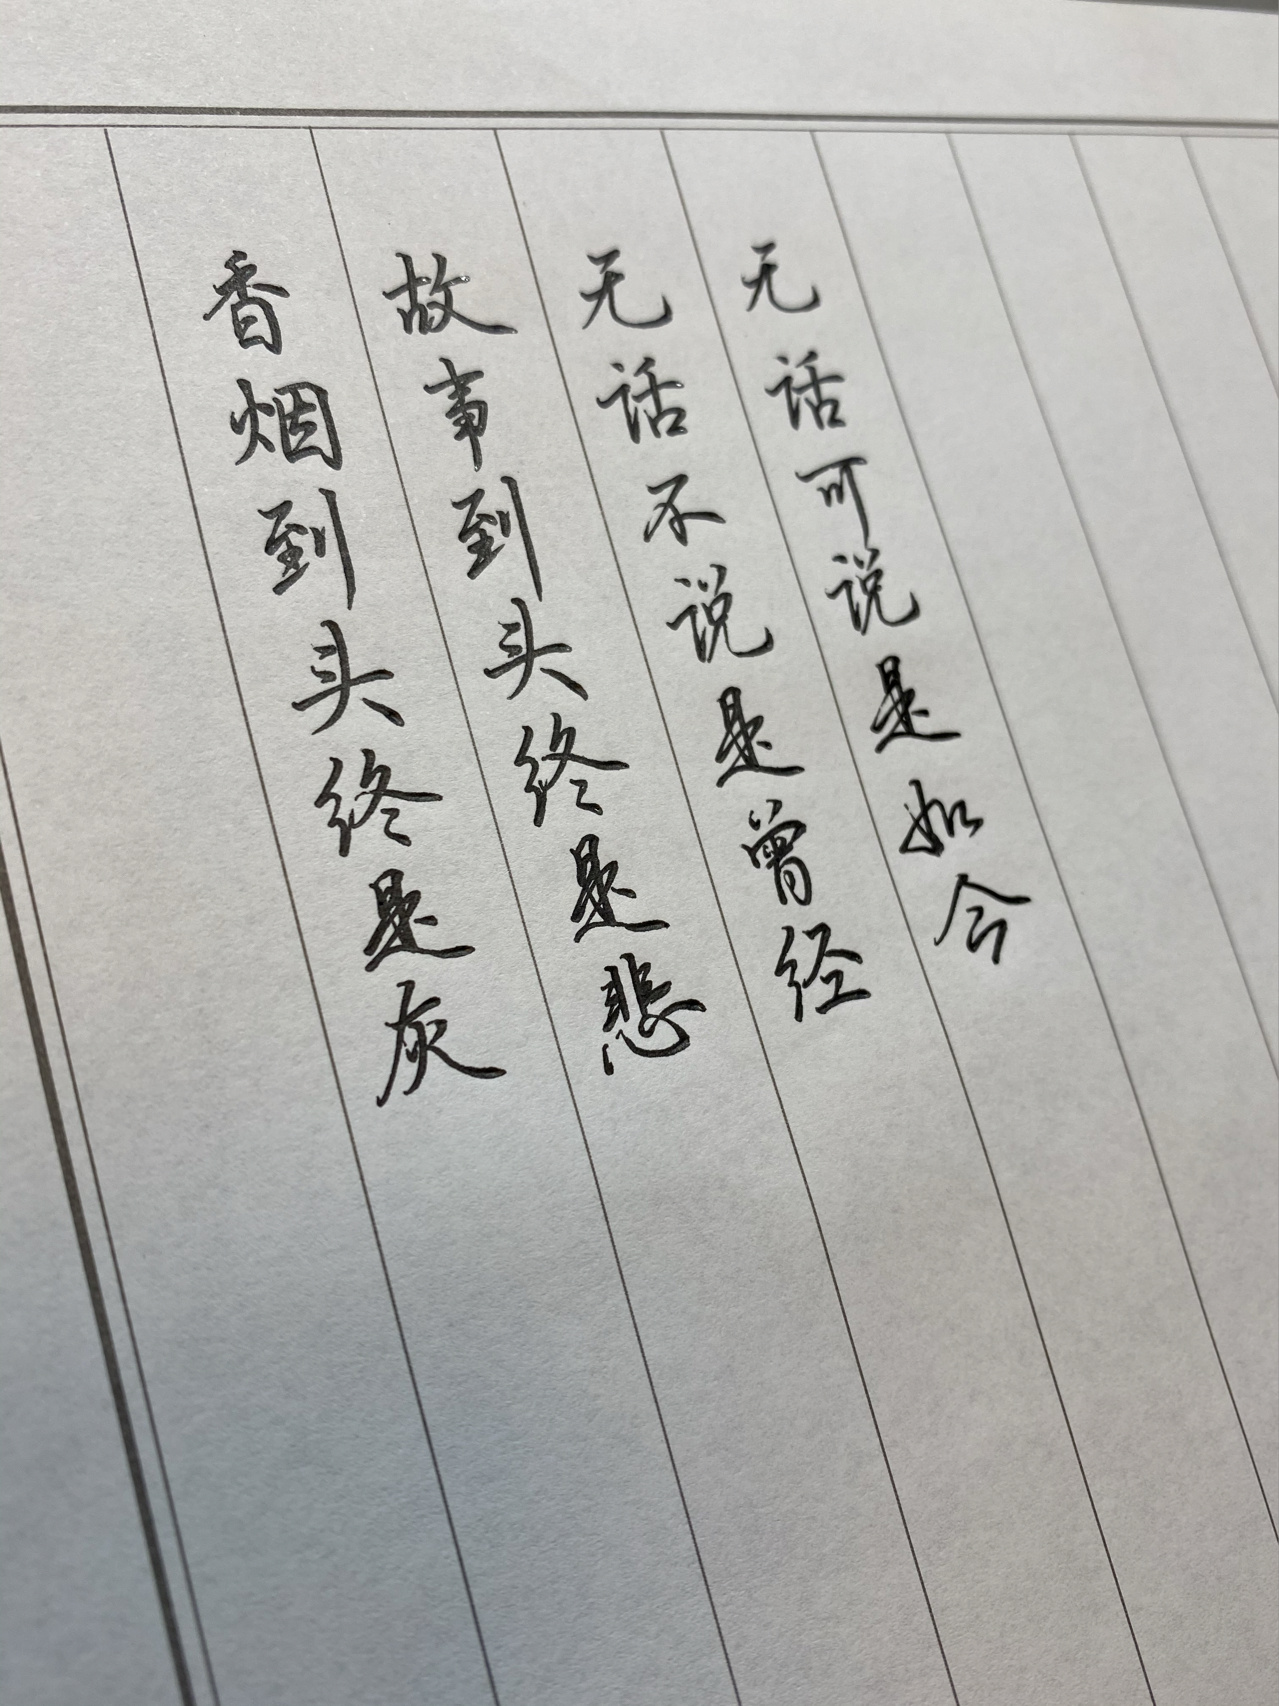 香烟到头终是灰
故事到头终是悲
无话不说是曾经
无话可说是如今